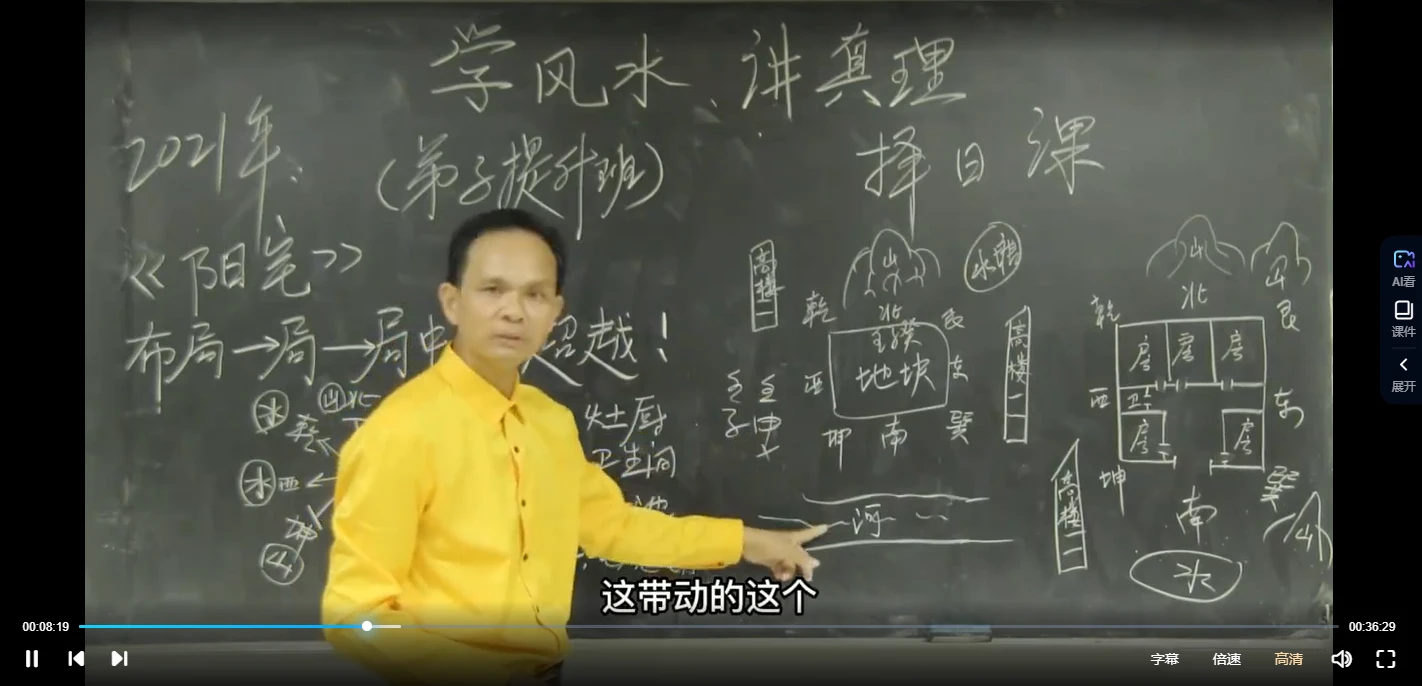 学风水、讲真理
2021年. (弟子提升班) 择日课
《阳宅》
布局→局→局中 超越!
水 山 北
水 西
灶厨
卫生间
高楼二
山
水塘
北
乾 艮
壬癸
地块
西 东
高楼一
壬 壬
子 申
坤 南 巽
河
山 山
北
乾 艮
房 房 房
西 卫 东
房 房
坤 巽
高楼二
南
山
水
这带动的这个
00:08:19
00:36:29
字幕 倍速 高清
AI看
课件
展开